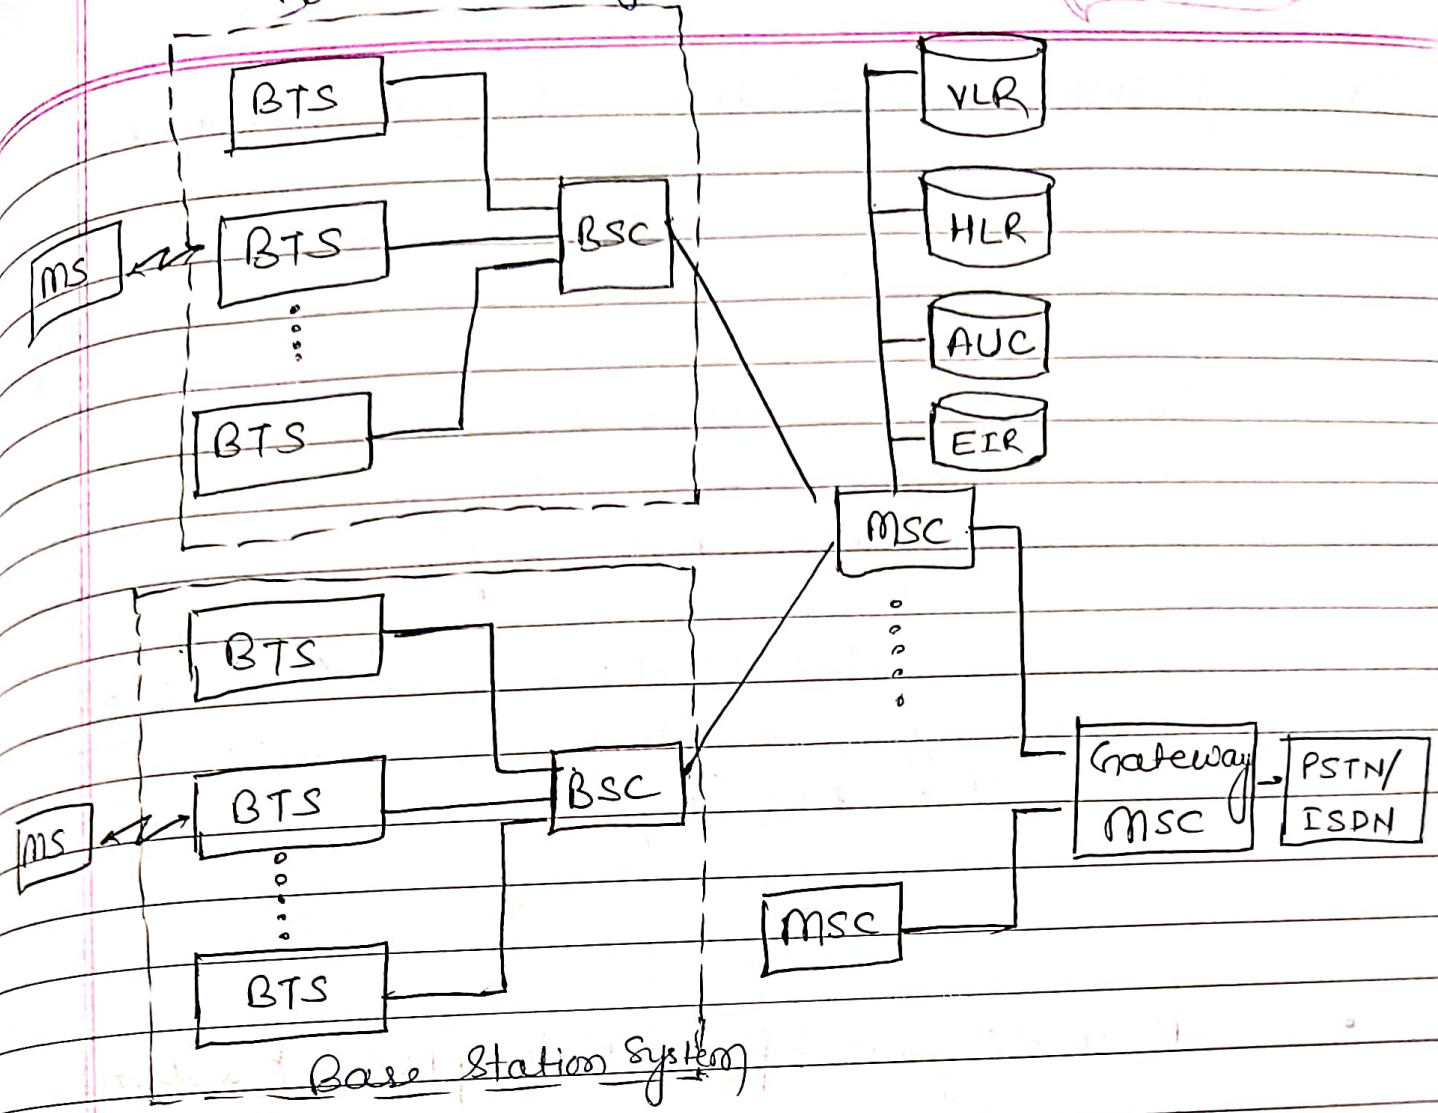 BTS
BTS
BTS
MS
BSC
VLR
HLR
AUC
EIR
MSC
BTS
BTS
BTS
MS
BSC
Gateway
MSC
PSTN/
ISDN
MSC
Base Station System